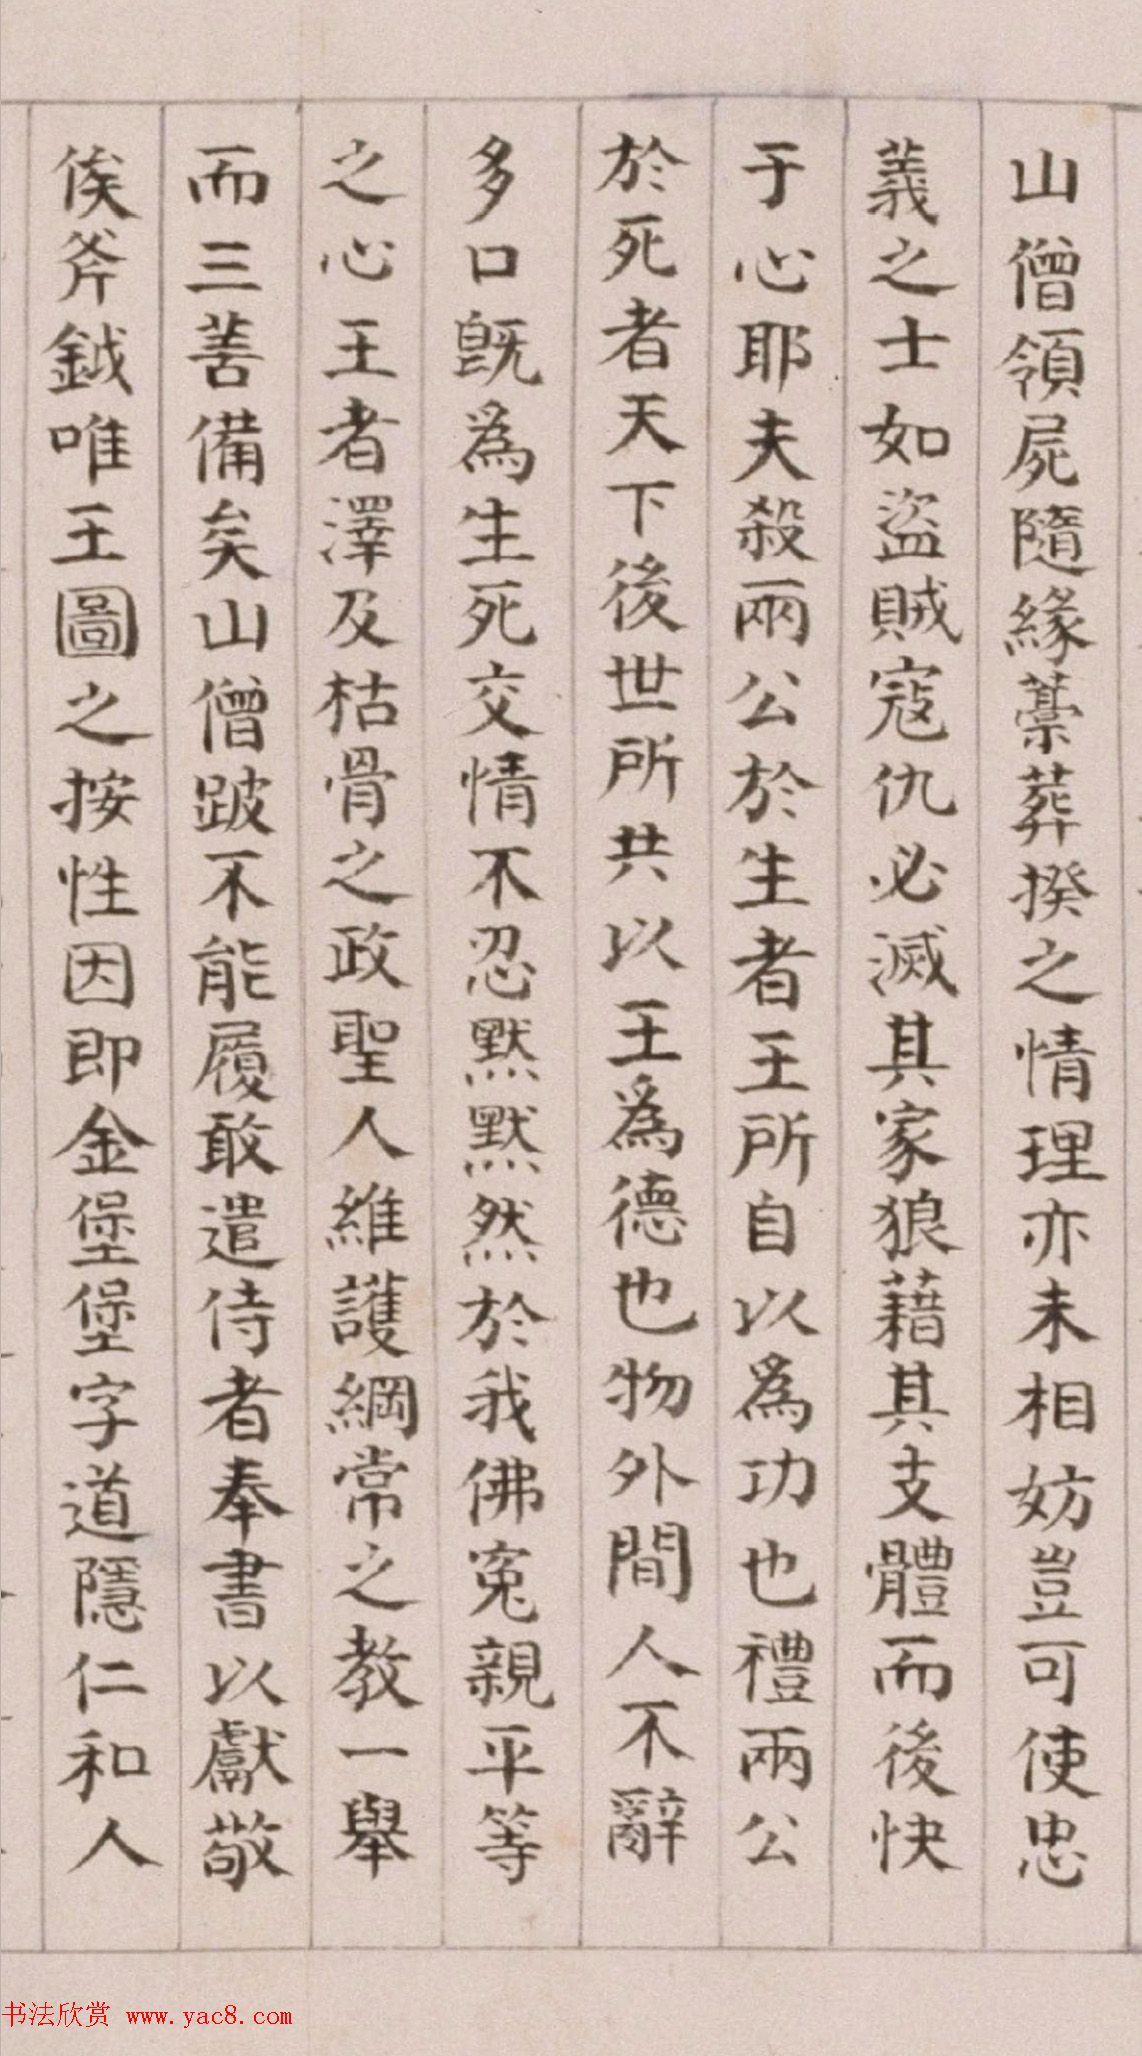 山僧領屍隨緣藁葬揆之情理亦未相妨豈可使忠
義之士如盜賊寇仇必滅其家狼藉其支體而後快
于心耶夫殺兩公於生者王所自以為功也禮兩公
於死者天下後世所共以王為德也物外閒人不辭
多口旣為生死交情不忍默默然於我佛寃親平等
之心王者澤及枯骨之政聖人維護綱常之教一舉
而三善備矣山僧跛不能履敢遣侍者奉書以獻敬
俟斧鉞唯王圖之按性因即金堡堡字道隱仁和人
书法欣赏 www.yac8.com